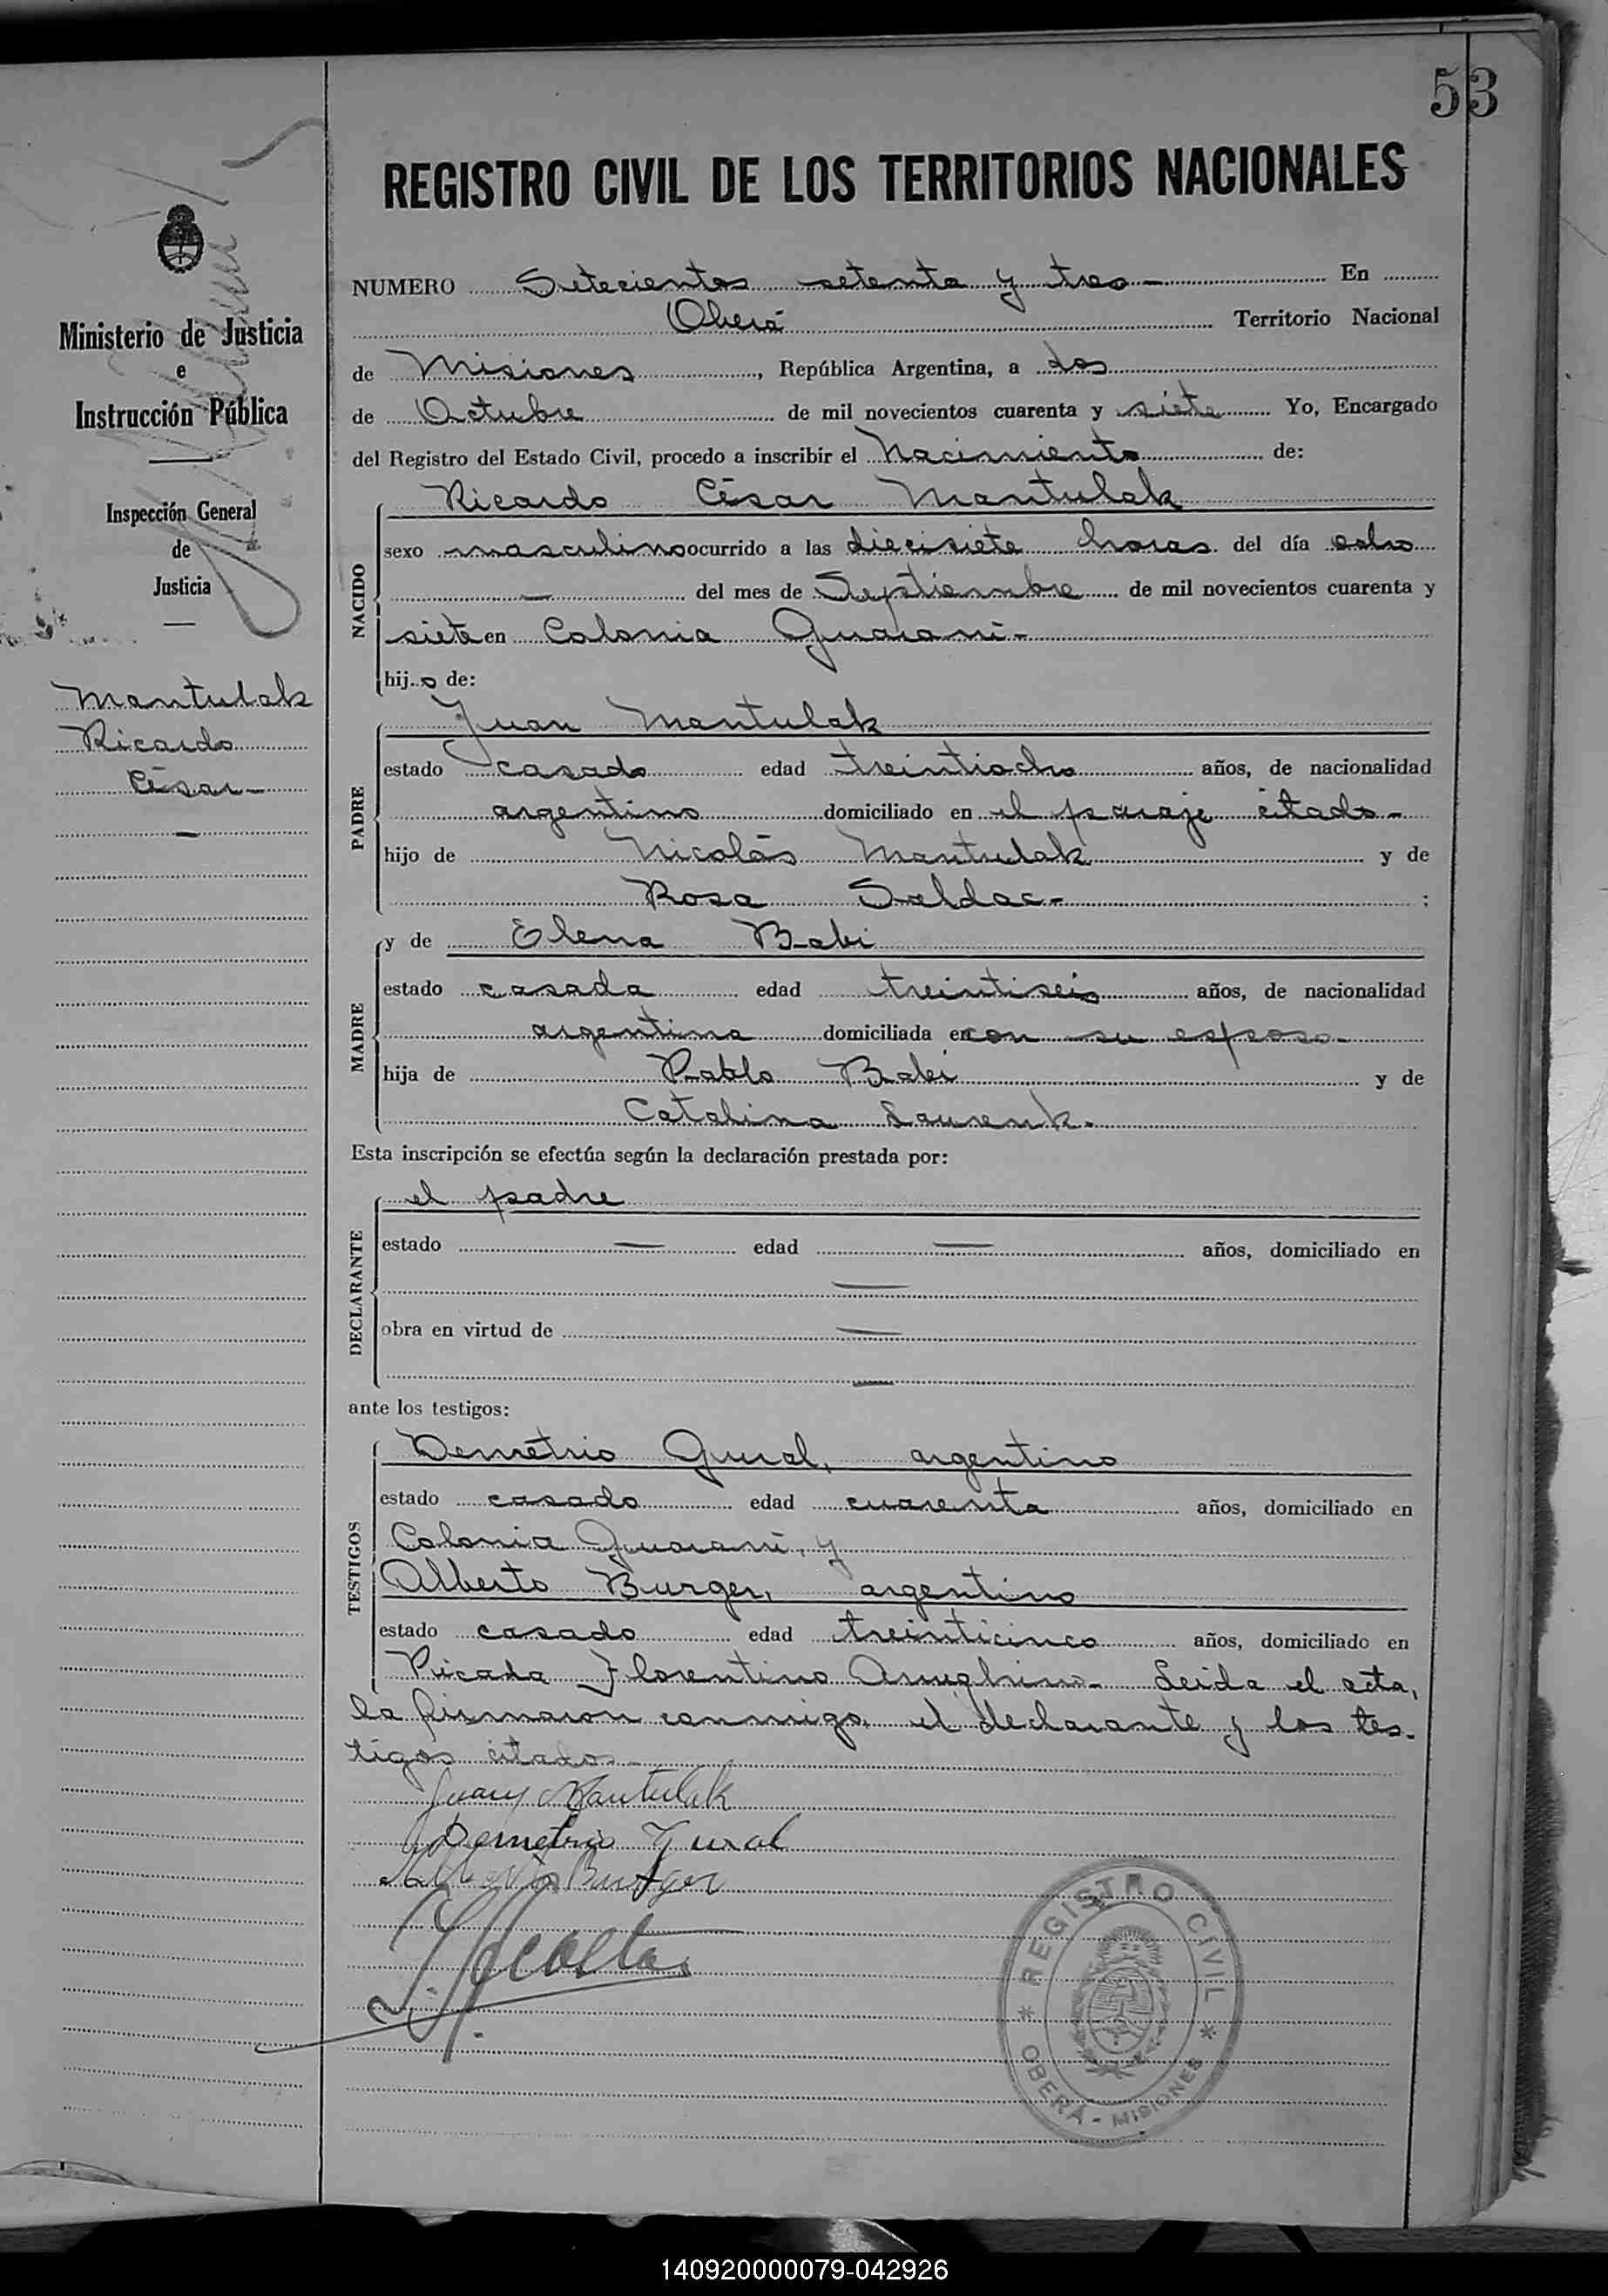 53
REGISTRO CIVIL DE LOS TERRITORIOS NACIONALES
Ministerio de Justicia
e
Instrucción Pública
Inspección General
de
Justicia
Mantulak
Ricardo
César-
NUMERO Setecientos setenta y tres- En
Oberá Territorio Nacional
de Misiones, República Argentina, a dos
de Octubre de mil novecientos cuarenta y siete Yo, Encargado
del Registro del Estado Civil, procedo a inscribir el Nacimiento de:
NACIDO
Ricardo César Mantulak
sexo masculino ocurrido a las diecisiete horas del día ocho
— del mes de Septiembre de mil novecientos cuarenta y
siete en Colonia Guaraní-
hij o de:
PADRE
Juan Mantulak
estado casado edad treintiocho años, de nacionalidad
argentino domiciliado en el paraje citado-
hijo de Nicolás Mantulak y de
Rosa Saldac- ;
MADRE
y de Elena Babi
estado casada edad treintiseis años, de nacionalidad
argentina domiciliada en con su esposo-
hija de Pablo Babi y de
Catalina Laurenk.
Esta inscripción se efectúa según la declaración prestada por:
DECLARANTE
el padre
estado — edad — años, domiciliado en
—
obra en virtud de —
—
ante los testigos:
TESTIGOS
Demétrio Gural, argentino
estado casado edad cuarenta años, domiciliado en
Colonia Guaraní, y
Alberto Burger, argentino
estado casado edad treinticinco años, domiciliado en
Picada Florentino Ameghino- Leida el acta,
la firmaron conmigo, el declarante y los tes-
tigos citados-
Juan Mantulak
Demetrio Gural
Alberto Burger
Acosta
REGISTRO CIVIL
OBERÁ - MISIONES
140920000079-042926